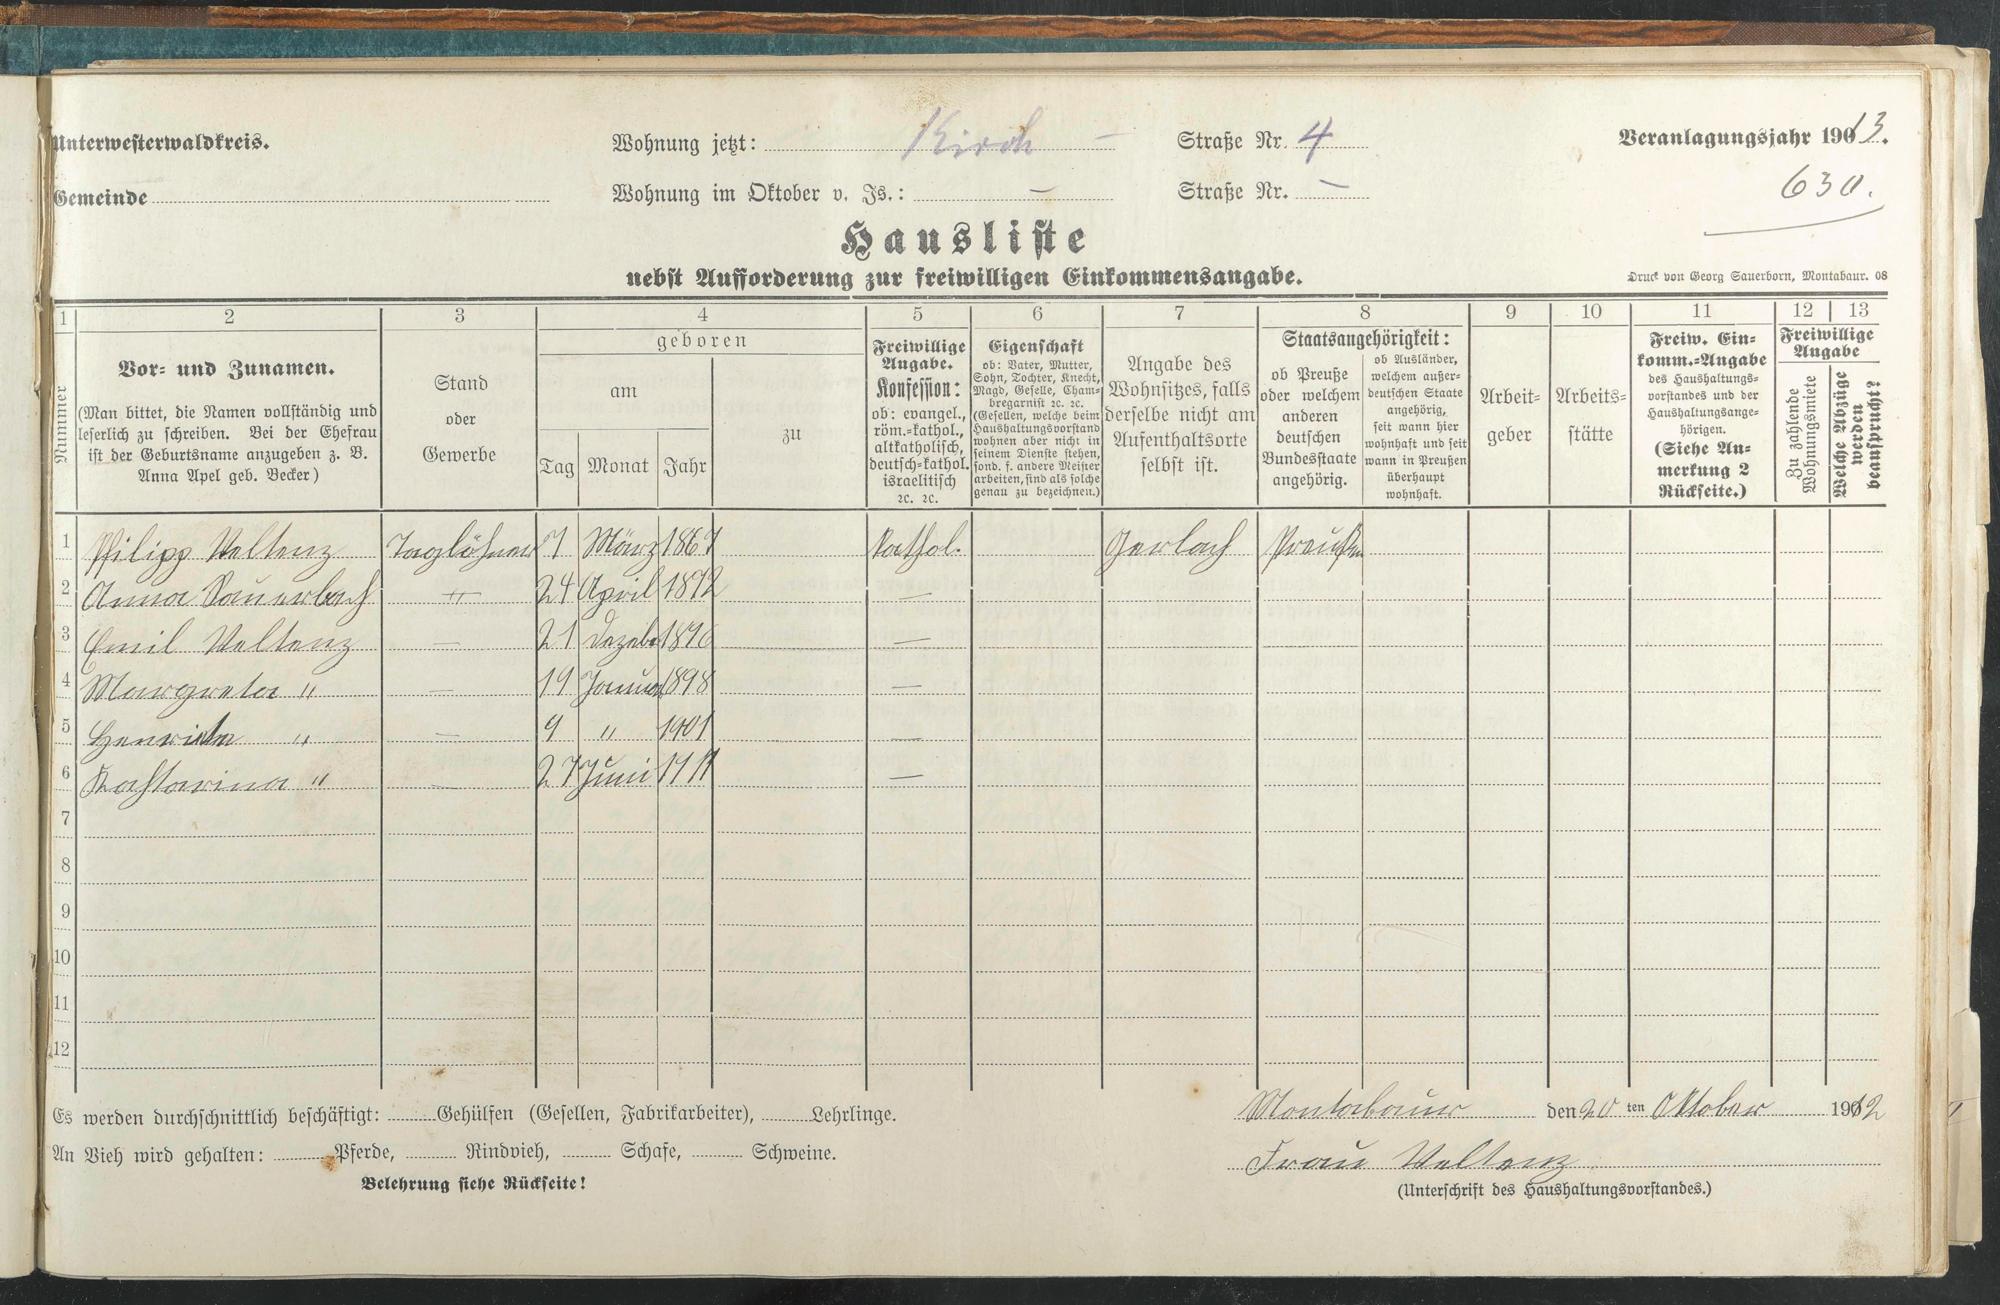 Unterwesterwaldkreis.
Wohnung jetzt: Kirch – Straße Nr. 4
Veranlagungsjahr 1913.
Gemeinde
Wohnung im Oktober v. Js.: – Straße Nr. –
630.
Hausliste
nebst Aufforderung zur freiwilligen Einkommensangabe.
Druck von Georg Sauerborn, Montabaur. 08
1 2 3 4 5 6 7 8 9 10 11 12 13
Nummer
Vor- und Zunamen.
(Man bittet, die Namen vollständig und
leserlich zu schreiben. Bei der Ehefrau
ist der Geburtsname anzugeben z. B.
Anna Apel geb. Becker)
Stand
oder
Gewerbe
geboren
am
Tag Monat Jahr
zu
Freiwillige
Angabe.
Konfession:
ob: evangel.,
röm.-kathol.,
altkatholisch,
deutsch-kathol.
israelitisch
ꝛc. ꝛc.
Eigenschaft
ob: Vater, Mutter,
Sohn, Tochter, Knecht,
Magd, Geselle, Cham-
bregarnist ꝛc. ꝛc.
(Gesellen, welche beim
Haushaltungsvorstand
wohnen aber nicht in
seinem Dienste stehen,
sond. f. andere Meister
arbeiten, sind als solche
genau zu bezeichnen.)
Angabe des
Wohnsitzes, falls
derselbe nicht am
Aufenthaltsorte
selbst ist.
Staatsangehörigkeit:
ob Preuße
oder welchem
anderen
deutschen
Bundesstaate
angehörig.
ob Ausländer,
welchem außer-
deutschen Staate
angehörig,
seit wann hier
wohnhaft und seit
wann in Preußen
überhaupt
wohnhaft.
Arbeit-
geber
Arbeits-
stätte
Freiw. Ein-
komm.-Angabe
des Haushaltungs-
vorstandes und der
Haushaltungsange-
hörigen.
(Siehe An-
merkung 2
Rückseite.)
Freiwillige
Angabe
Zu zahlende
Wohnungsmiete
Welche Abzüge
werden
beansprucht?
1 Philipp Weltenz Taglöhner 7 März 1867 Kathol. Gerlach Preuße
2 Anna Sauerbach " 24 April 1872 –
3 Emil Weltenz – 21 Dezebr 1896 –
4 Margreta " – 19 Januar 1898 –
5 " – 9 " 1901 –
6 Kathtarina " – 27 Juni 1911 –
7
8
9
10
11
12
Es werden durchschnittlich beschäftigt: Gehülfen (Gesellen, Fabrikarbeiter), Lehrlinge.
Montabaur den 20 ten Oktober 1912
An Vieh wird gehalten: Pferde, Rindvieh, Schafe, Schweine.
Frau Weltenz
Belehrung siehe Rückseite!
(Unterschrift des Haushaltungsvorstandes.)